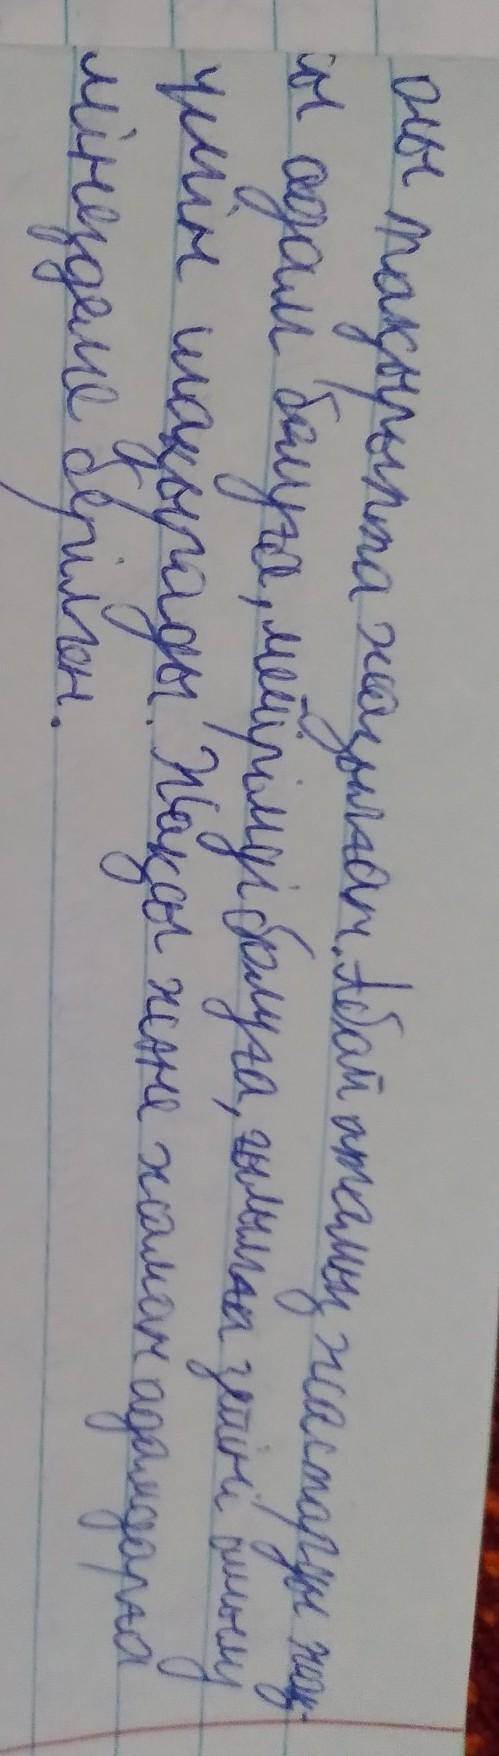 оны тақырыпта жазылған. Абай атамыз жастарды жақ-
сы адам болуға, мейірімді болуға, ғылымға үйінің ашылу
үшін шақырады. Жақсы және жаман адамдарға
мінездеме берілген.